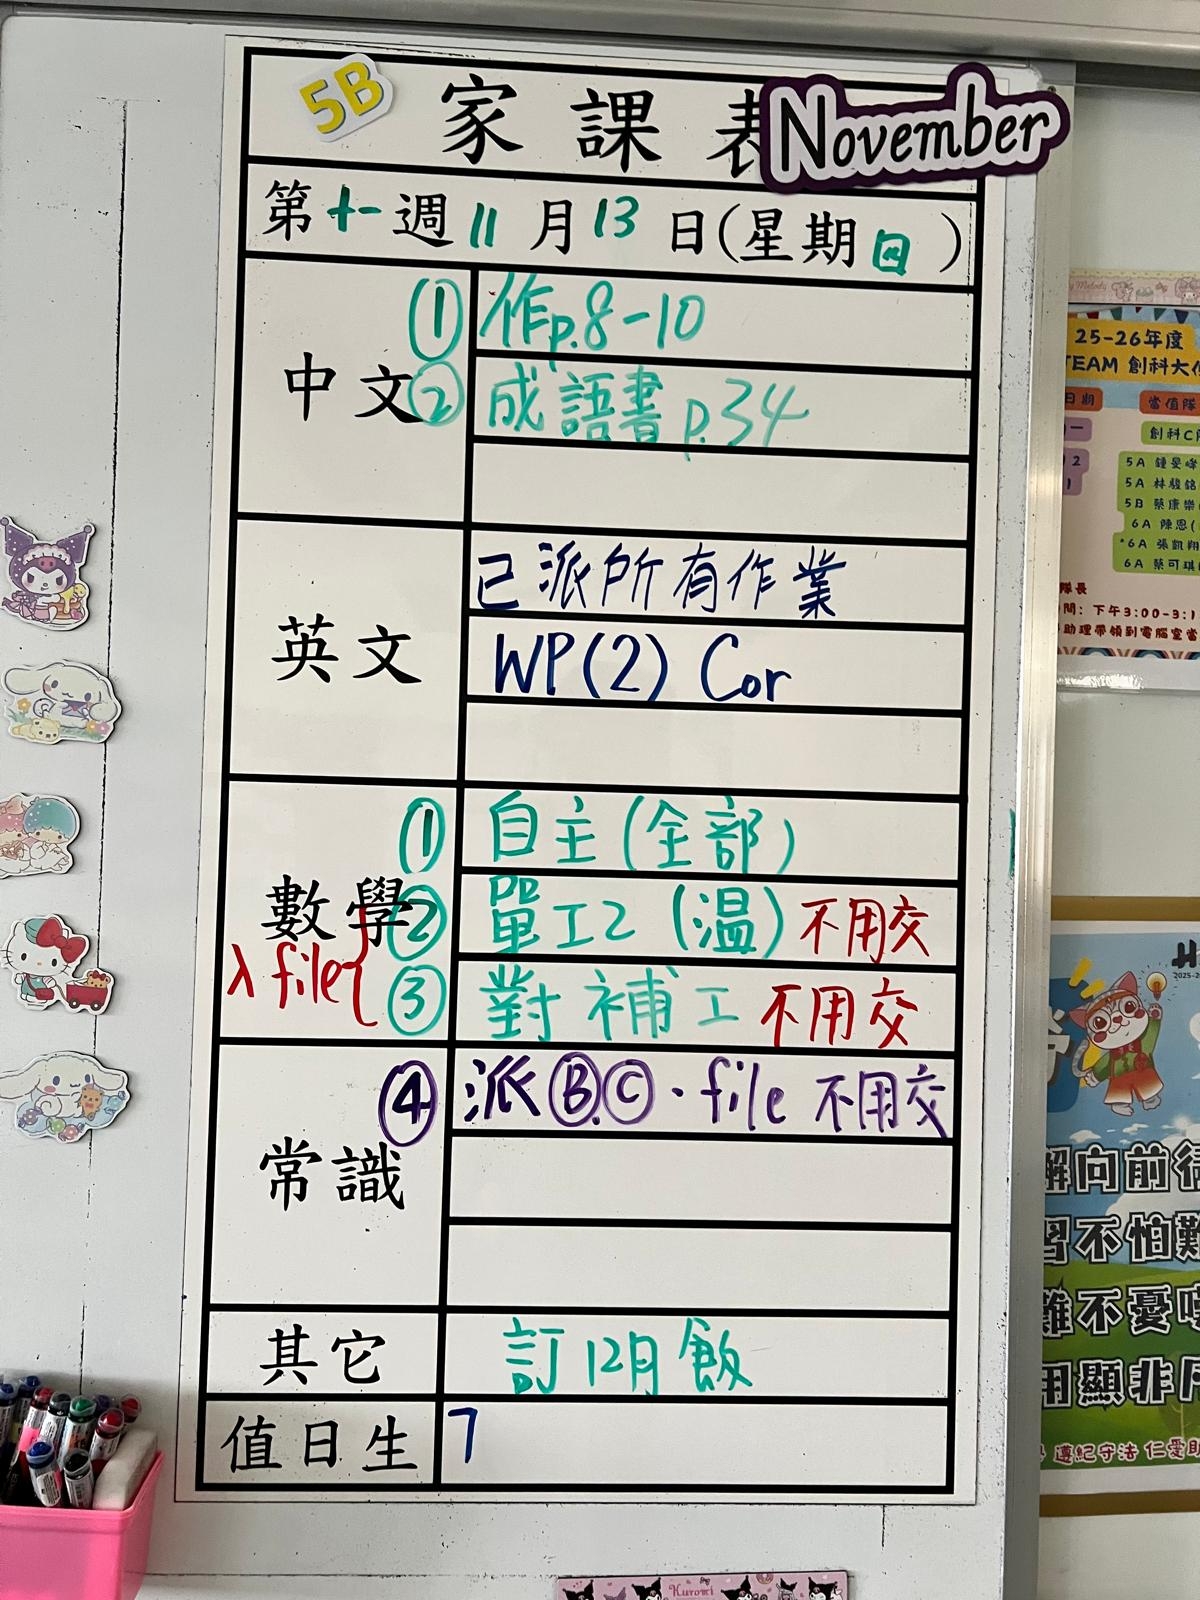 5B 家課表 November
第十一週 11月13日(星期四)
中文
① 作p.8-10
② 成語書 p.34
英文
已派所有作業
WP(2) Cor
數學
入file{
① 自主(全部)
② 單工2(溫)不用交
③ 對補工 不用交
常識
④ 派Ⓑ.Ⓒ.file 不用交
其它
訂12月飯
值日生
7
My Melody
25-26年度
TEAM 創科大使
日期
當值隊
創科C隊
5A
5A 林駿銘
5B 蔡康樂
6A 陳恩(
*6A 張凱翔
6A 蔡可琪
隊長
間: 下午3:00-3:1
助理帶領到電腦室當
H
2025-2
解向前往
習不怕難
難不憂嘆
用顯非凡
遵紀守法 仁愛助
Kuromi